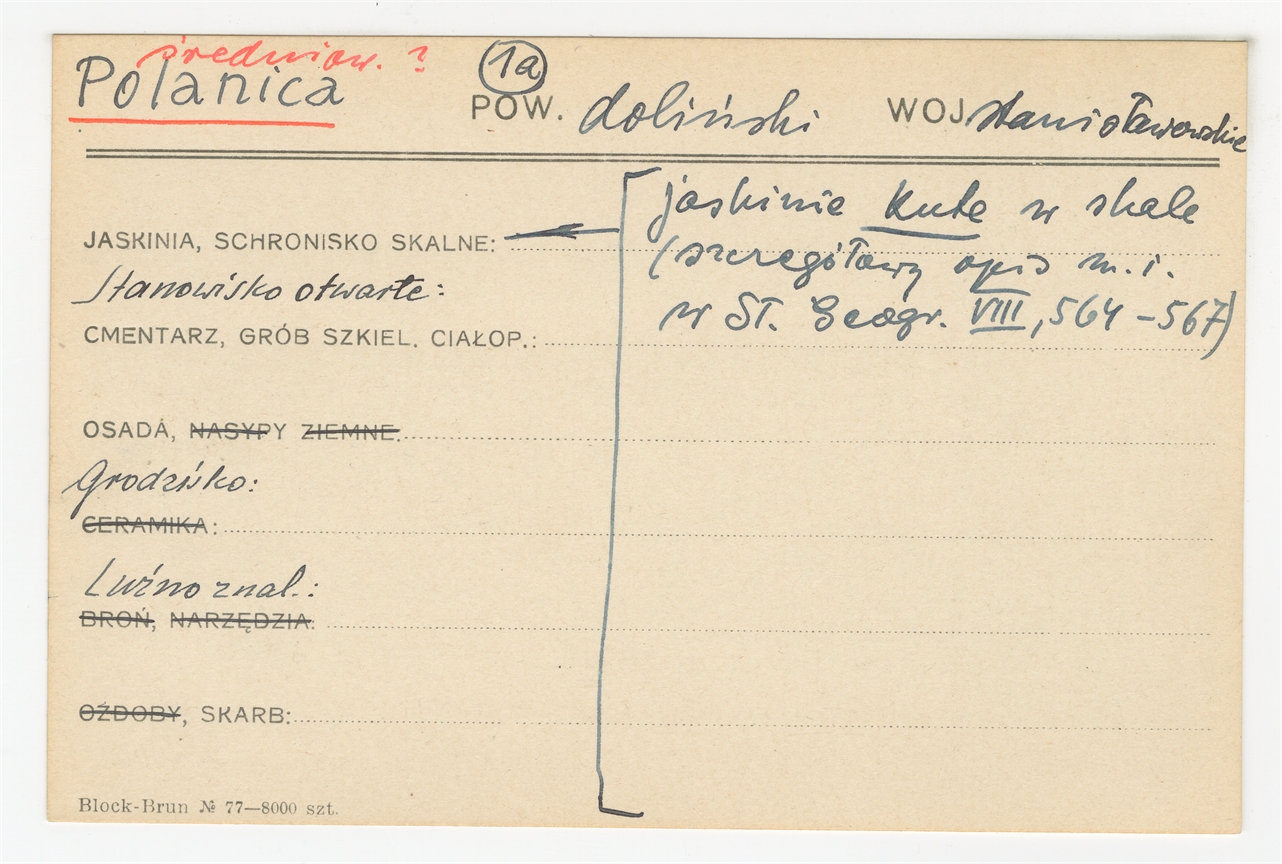 średniow. ?
Polanica
1a
POW. doliński WOJ. stanisławowskie
jaskinie kute w skale
JASKINIA, SCHRONISKO SKALNE:
(szczegółowy opis m. i.
Stanowisko otwarte:
w Sł. Geogr. VIII, 564-567)
CMENTARZ, GRÓB SZKIEL. CIAŁOP.:
OSADA, NASYPY ZIEMNE
Grodzisko:
CERAMIKA:
Luźno znal.:
BROŃ, NARZĘDZIA
OZDOBY, SKARB:
Block-Brun № 77—8000 szt.